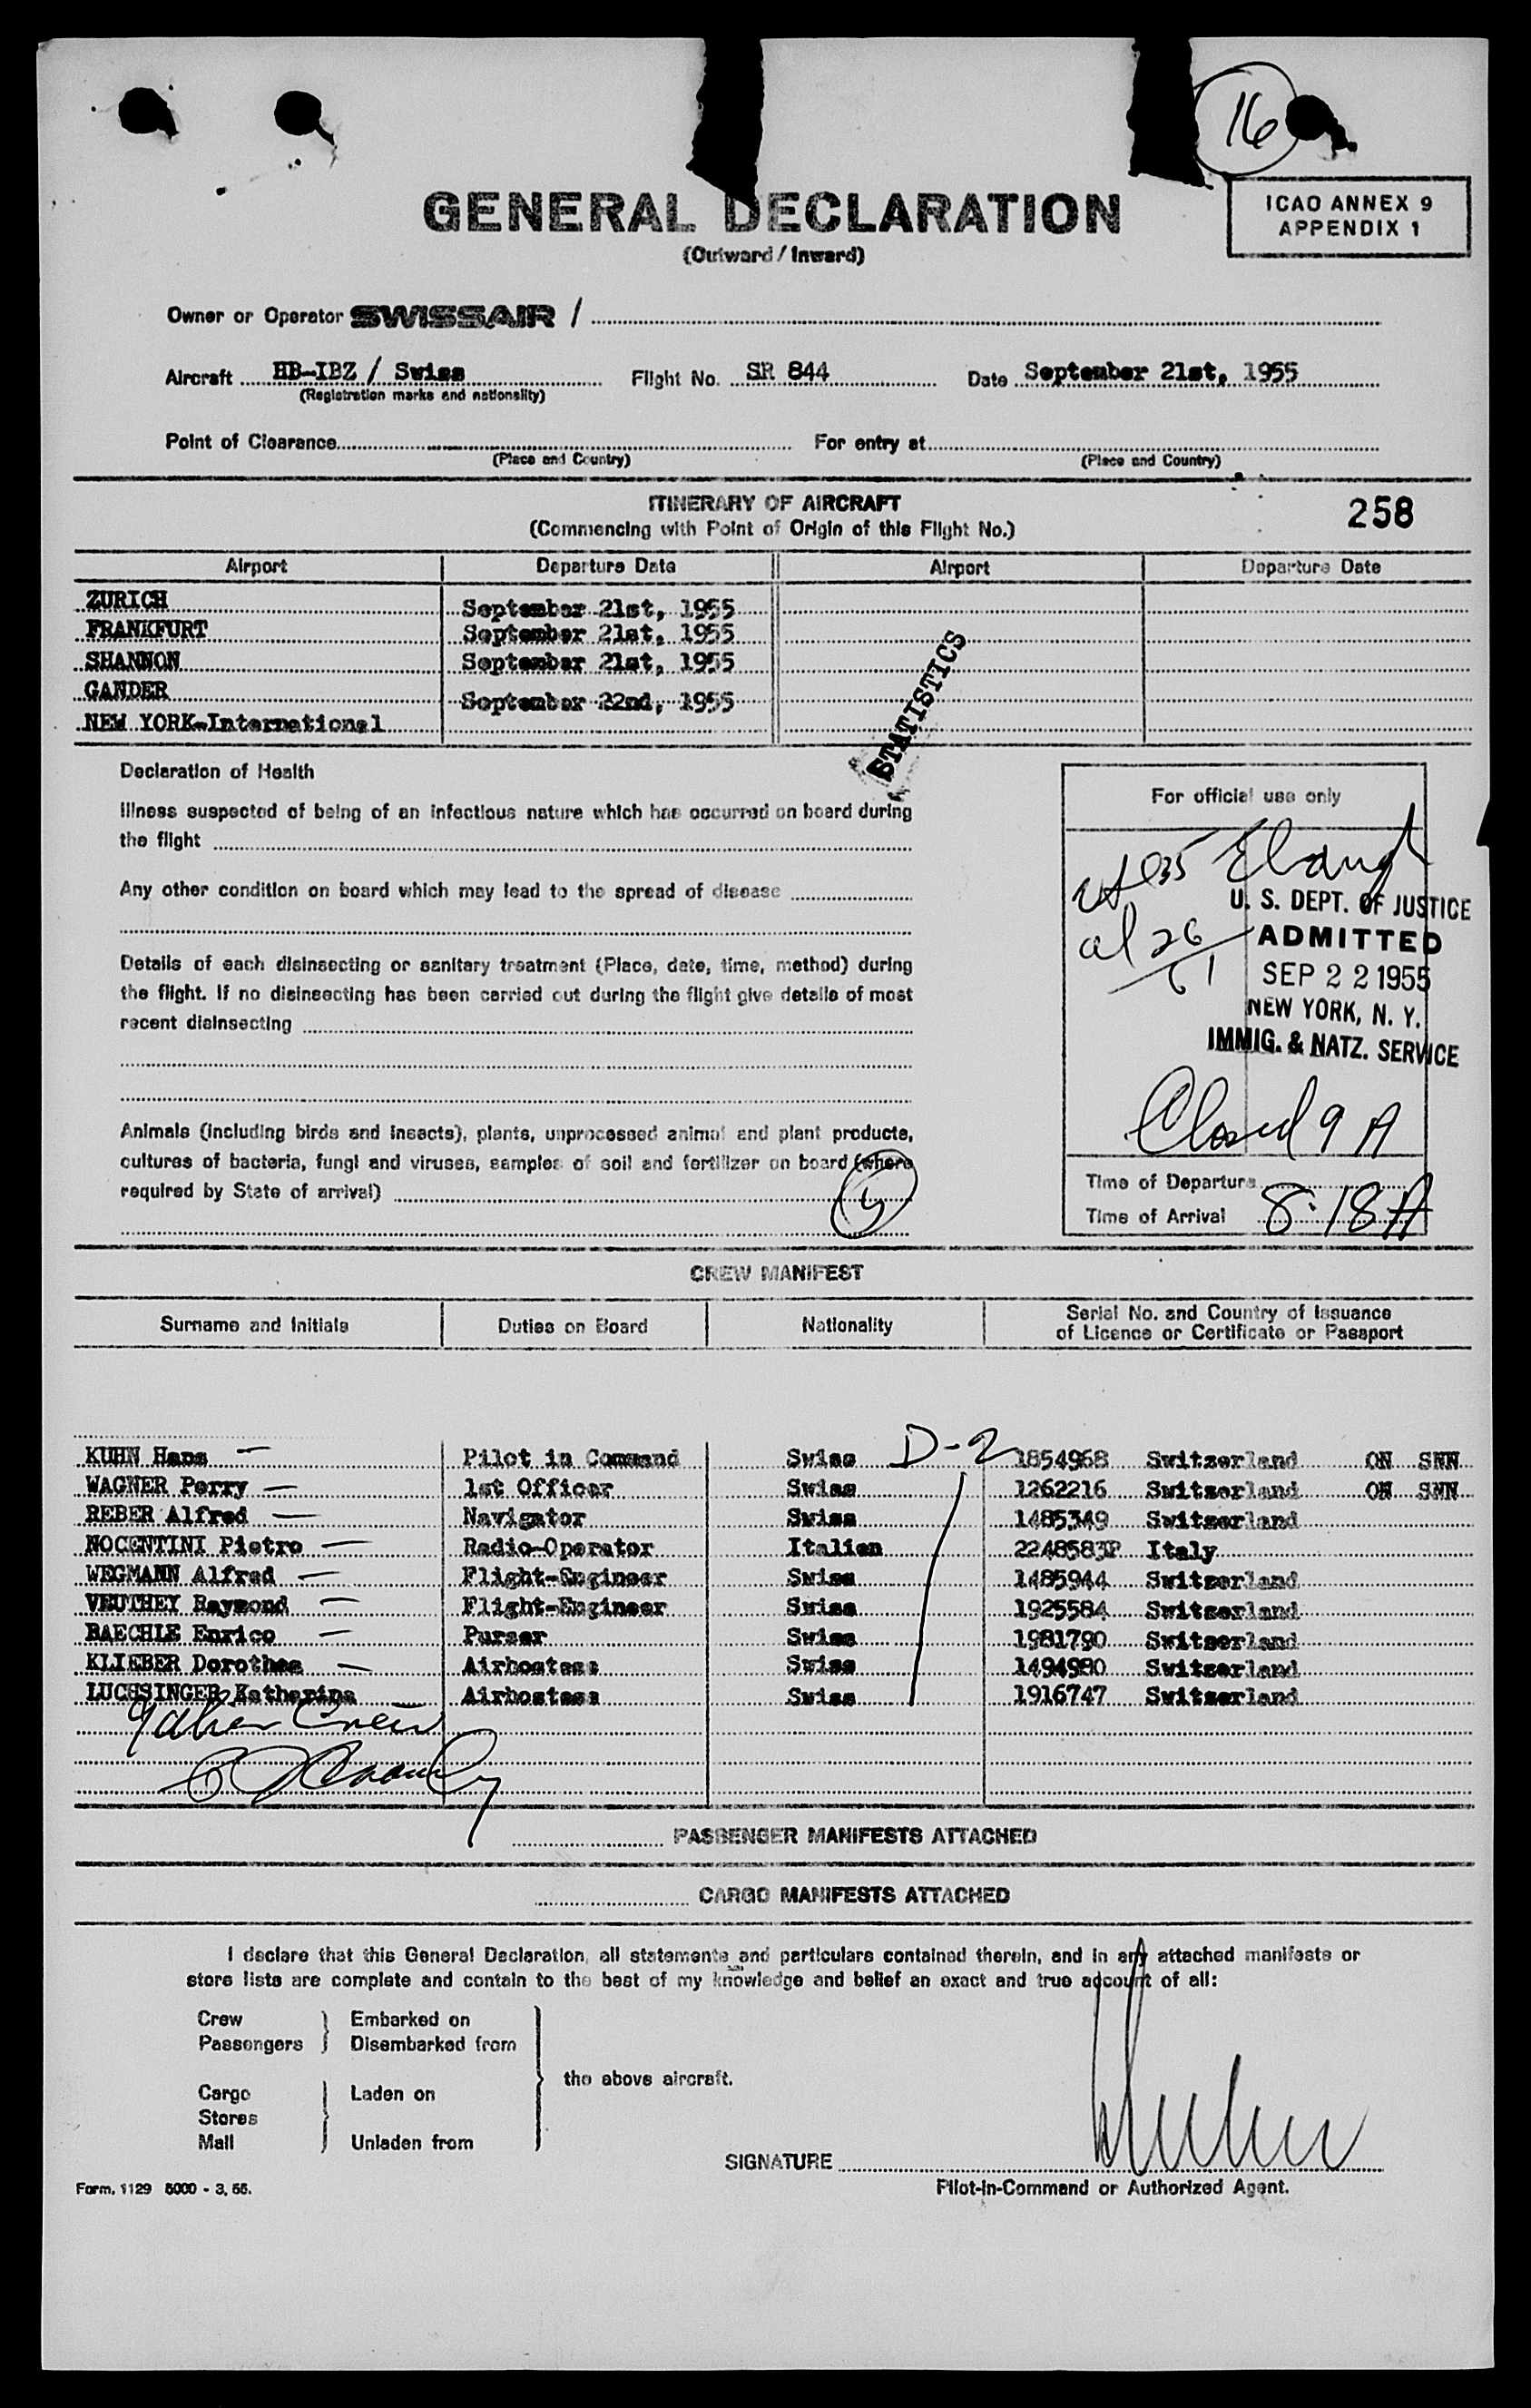 16
GENERAL DECLARATION
(Outward / Inward)
ICAO ANNEX 9
APPENDIX 1
Owner or Operator SWISSAIR /
Aircraft HB-IBZ / Swiss Flight No. SR 844 Date September 21st, 1955
(Registration marks and nationality)
Point of Clearance For entry at
(Place and Country) (Place and Country)
ITINERARY OF AIRCRAFT
(Commencing with Point of Origin of this Flight No.)
258
Airport Departure Date Airport Departure Date
ZURICH September 21st, 1955
FRANKFURT September 21st, 1955
SHANNON September 21st, 1955
GANDER September 22nd, 1955
NEW YORK-International
STATISTICS
Declaration of Health
Illness suspected of being of an infectious nature which has occurred on board during
the flight
Any other condition on board which may lead to the spread of disease
Details of each disinsecting or sanitary treatment (Place, date, time, method) during
the flight. If no disinsecting has been carried out during the flight give details of most
recent disinsecting
Animals (including birds and insects), plants, unprocessed animal and plant products,
cultures of bacteria, fungi and viruses, samples of soil and fertilizer on board (where
required by State of arrival)
For official use only
U. S. DEPT. OF JUSTICE
ADMITTED
SEP 22 1955
NEW YORK, N. Y.
IMMIG. & NATZ. SERVICE
Closed 9 A
Time of Departure
Time of Arrival 8:18 A
CREW MANIFEST
Surname and Initials Duties on Board Nationality Serial No. and Country of Issuance
of Licence or Certificate or Passport
D-2
KUHN Hans Pilot in Command Swiss 1854968 Switzerland ON SNN
WAGNER Perry 1st Officer Swiss 1262216 Switzerland ON SNN
REBER Alfred Navigator Swiss 1485349 Switzerland
NOCENTINI Pietro Radio-Operator Italian 2248583P Italy
WEGMANN Alfred Flight-Engineer Swiss 1485944 Switzerland
VEUTHEY Raymond Flight-Engineer Swiss 1925584 Switzerland
BAECHLE Enrico Purser Swiss 1981790 Switzerland
KLIEBER Dorothea Airhostess Swiss 1494980 Switzerland
LUCHSINGER Katharina Airhostess Swiss 1916747 Switzerland
PASSENGER MANIFESTS ATTACHED
CARGO MANIFESTS ATTACHED
I declare that this General Declaration, all statements and particulars contained therein, and in any attached manifests or
store lists are complete and contain to the best of my knowledge and belief an exact and true account of all:
Crew Embarked on
Passengers Disembarked from
the above aircraft.
Cargo Laden on
Stores
Mail Unladen from
SIGNATURE
Pilot-in-Command or Authorized Agent.
Form. 1129 5000 - 3, 55.